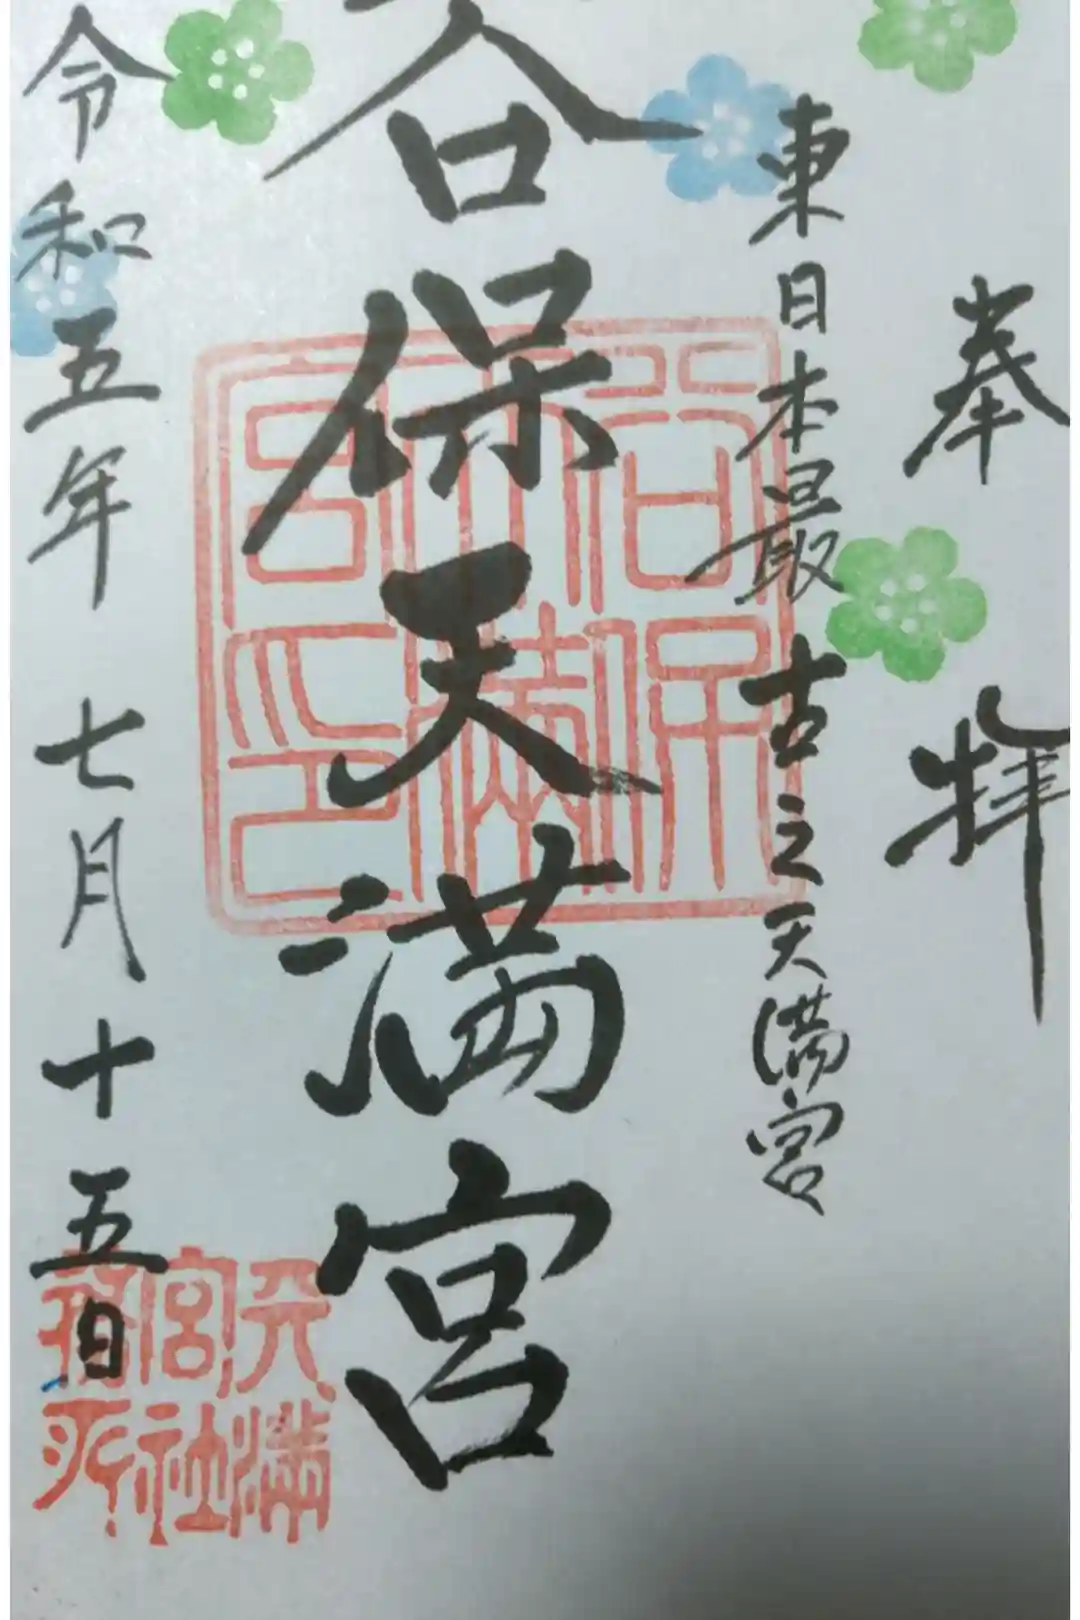 奉拝
東日本最古之天満宮
谷保天満宮
谷保天満宮印
令和五年 七月十五日
天満宮社務所